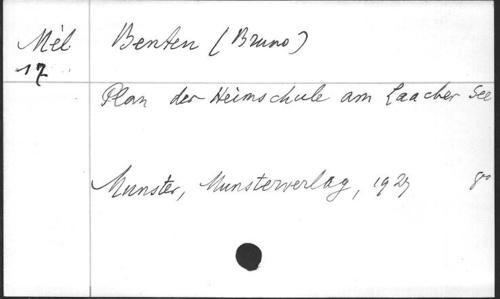 Mél Benten (Bruno)
17
Plan der Heimschule am Laacher See
Munster, Munsterverlag, 1927 8°